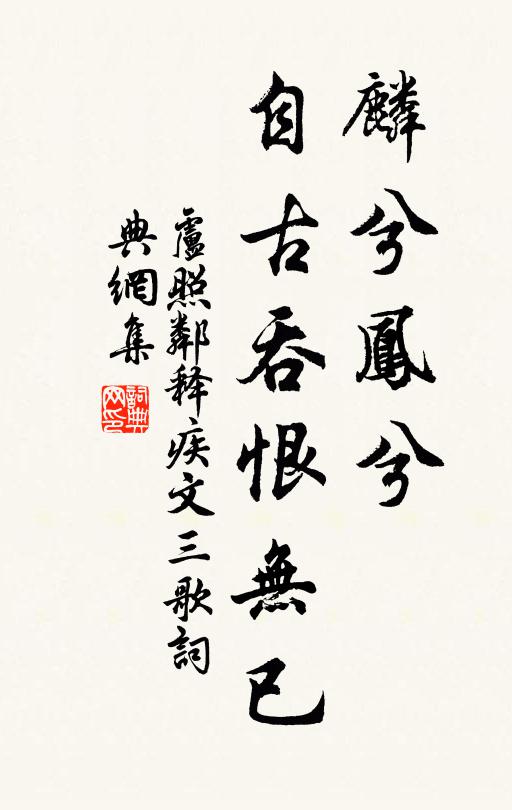 麟兮鳳兮
自古吞恨無已
盧照鄰释疾文三歌詞
典網集
詞典
网印